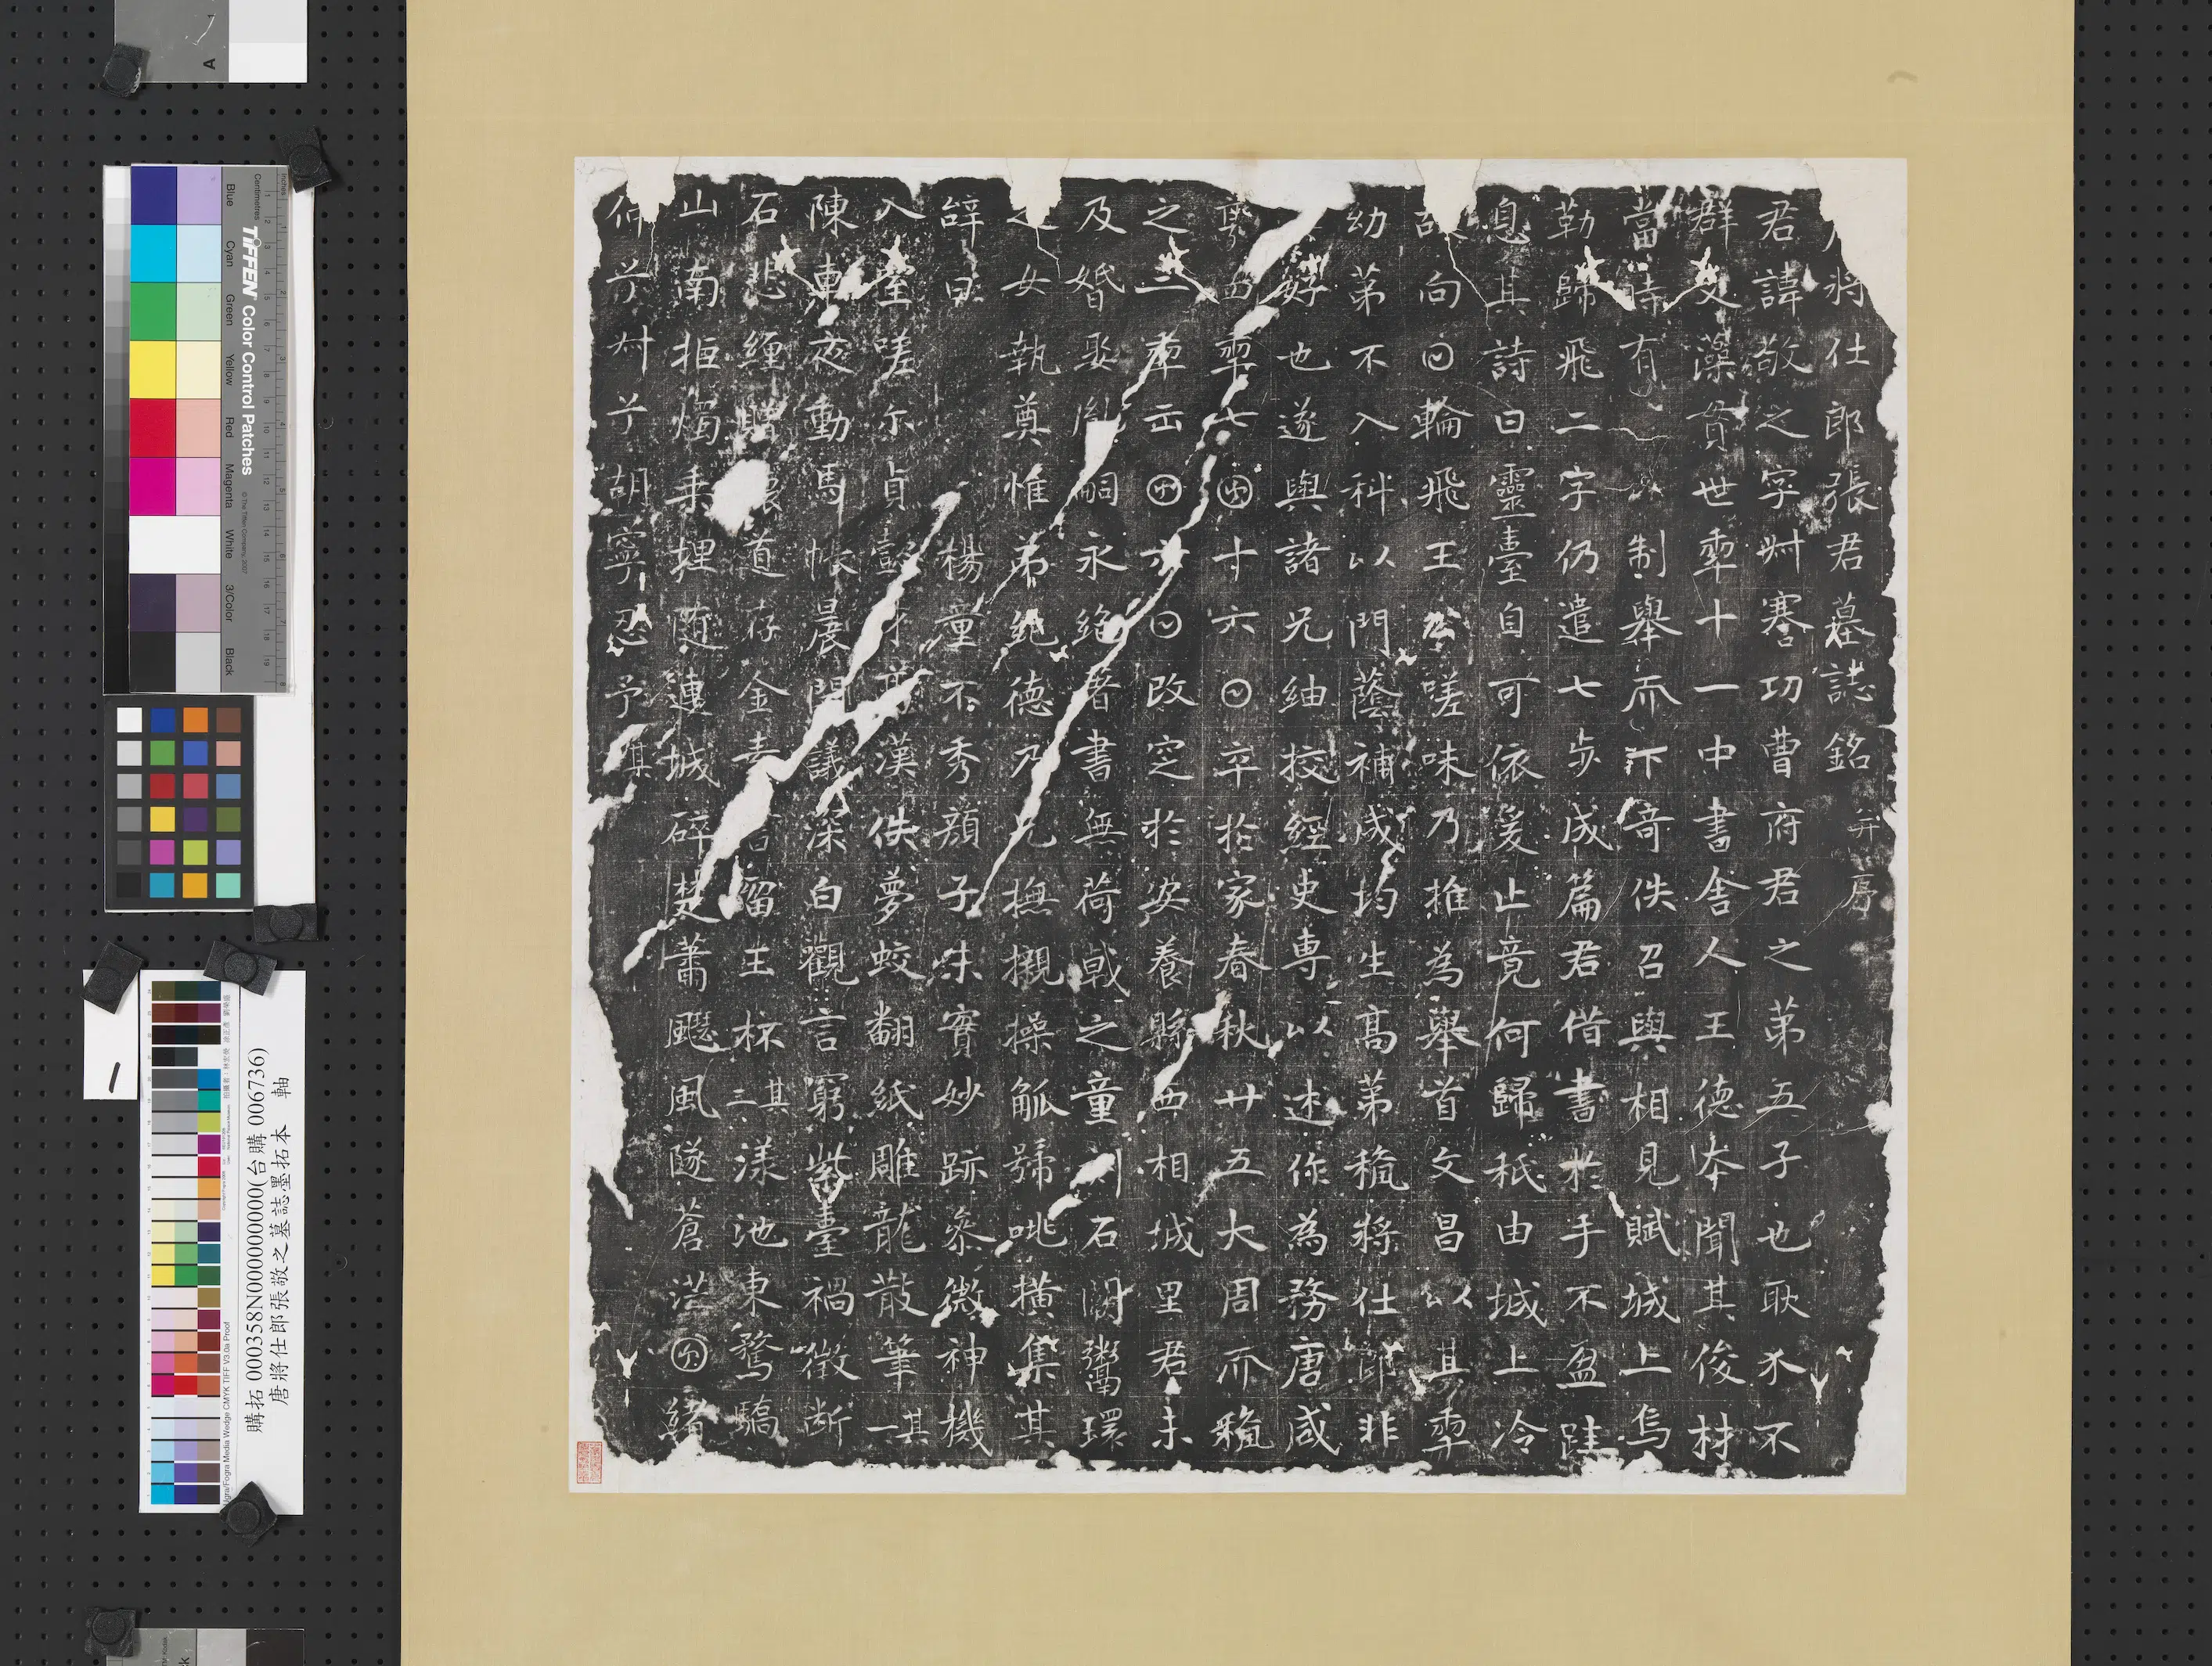 將仕郎張君墓誌銘并序
君諱敬之字叔謇功曹府君之第五子也耿介不
群文藻貫世年十一中書舍人王德本聞其俊材
當時有制舉天下奇佚召與相見賦城上烏
勒歸飛二字仍遣七步成篇君借書於手不盈跬
息其詩曰靈臺自可依爰止竟何歸秖由城上冷
故向日輪飛王公嗟味乃推為舉首文昌以其年
幼第不入科以門蔭補成均生高第授將仕郎非
好也遂與諸兄紬挍經史專以述作為務唐咸
亨四年七月十六日卒於家春秋廿五大周天授
之二年正月六日改窆於安養縣西相城里君未
及婚娶胤嗣永絕耆書無荷戟之童刊石闕鬻環
之女執奠惟弟紀德乃兄撫櫬操觚號咷橫集其
辭曰楊童不秀顏子味實妙跡參微神機
入室嗟尔貞懿才高漢佚夢蛟翻紙雕龍散筆其一
陳車夜動馬帳晨開議深白觀言窮紫臺禍徵斷
石悲纏贈瓌道存金留玉杯其二漾池東騖驕
山南拒燭乘埋連城碎楚蕭飈風隧蒼茫月緒
何兮叔兮胡寧忍予其
購拓 000358N000000000(台購 006736)
唐將仕郎張敬之墓誌墨拓本 軸
一
TIFFEN Color Control Patches
© The Tiffen Company, 2007
Centimetres
Inches
Blue
Cyan
Green
Yellow
Red
Magenta
White
3/Color
Black
A
Ugra/Fogra Media Wedge CMYK TIFF V3.0a Proof